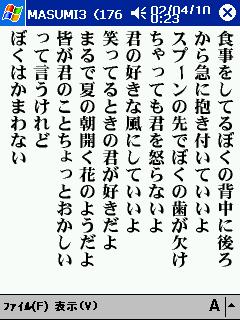 MASUMI3 (176
02/04/10
8:23
食事をしてるぼくの背中に後ろ
から急に抱き付いていいよ
スプーンの先でぼくの歯が欠け
ちゃっても君を怒らないよ
君の好きな風にしていいよ
笑ってるときの君が好きだよ
まるで夏の朝開く花のようだよ
皆が君のことちょっとおかしい
って言うけれど
ぼくはかまわない
ﾌｧｲﾙ(F) 表示(V)
A